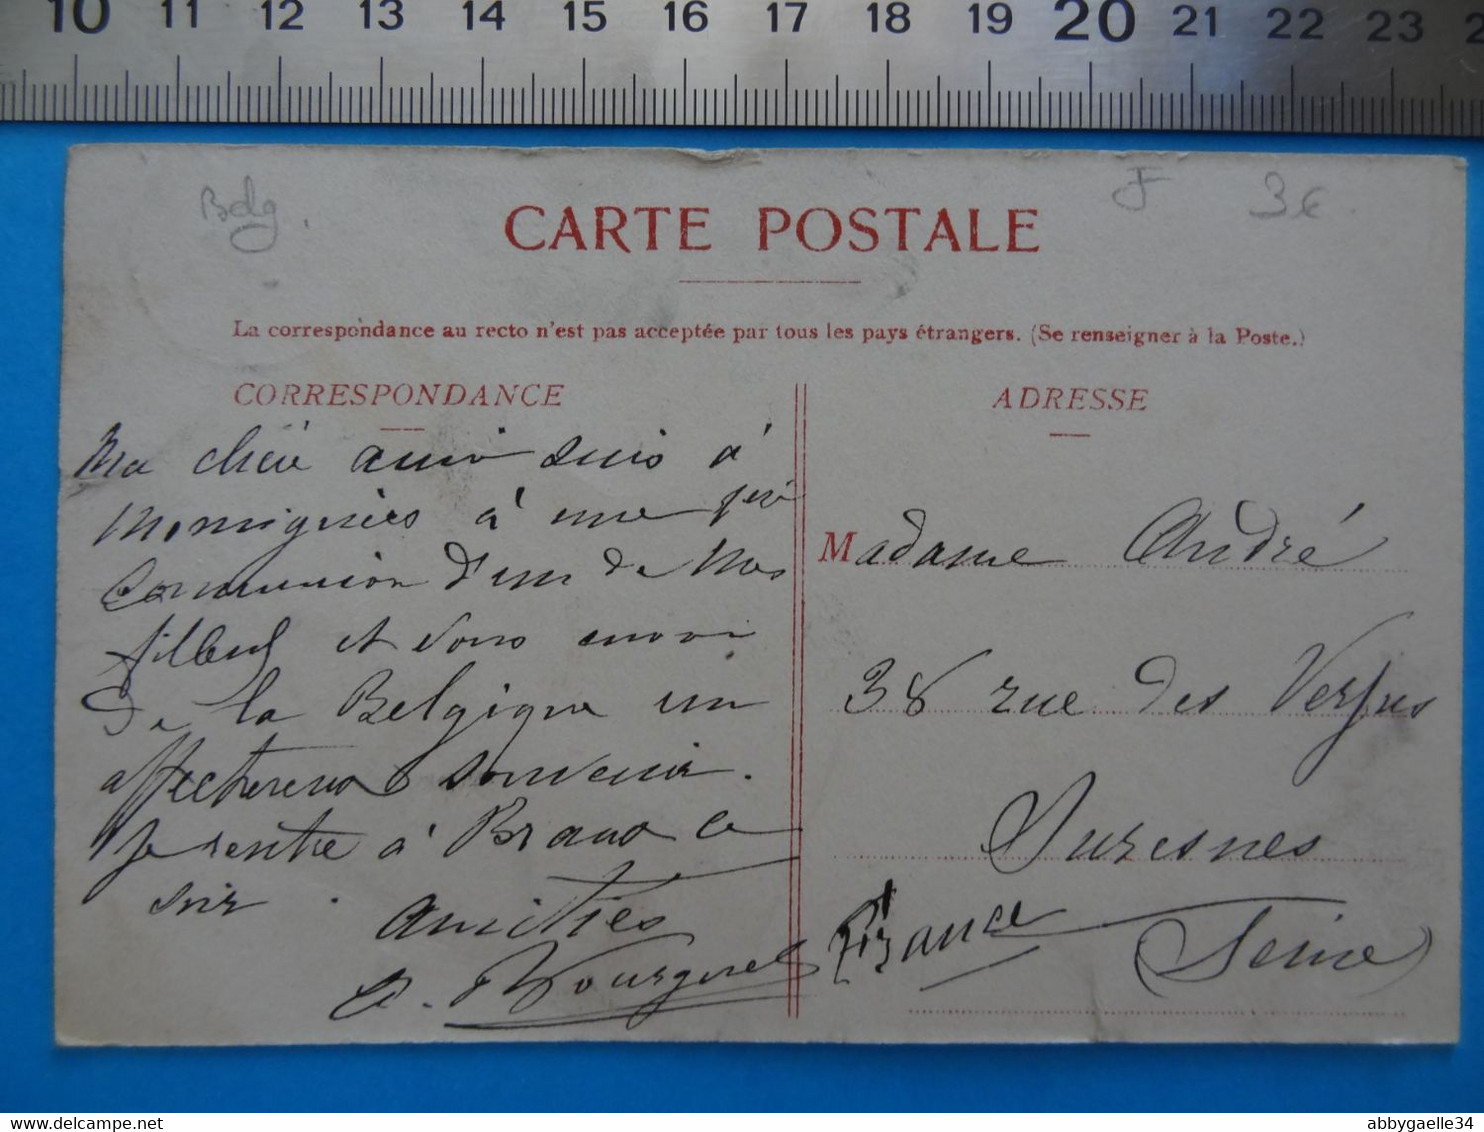 10 11 12 13 14 15 16 17 18 19 20 21 22 23 2
Belg.
F 3€
CARTE POSTALE
La correspondance au recto n'est pas acceptée par tous les pays étrangers. (Se renseigner à la Poste.)
CORRESPONDANCE
Ma chère amie suis à
Momignies à une 1ère
Communion d'un de Mes
filleul et vous envoi
De la Belgique un
affectueux souvenir.
Je rentre à ce
soir.
amitiés
ADRESSE
Madame André
38 rue des Verjus
Suresnes
(Seine)
France
abbygaelle34